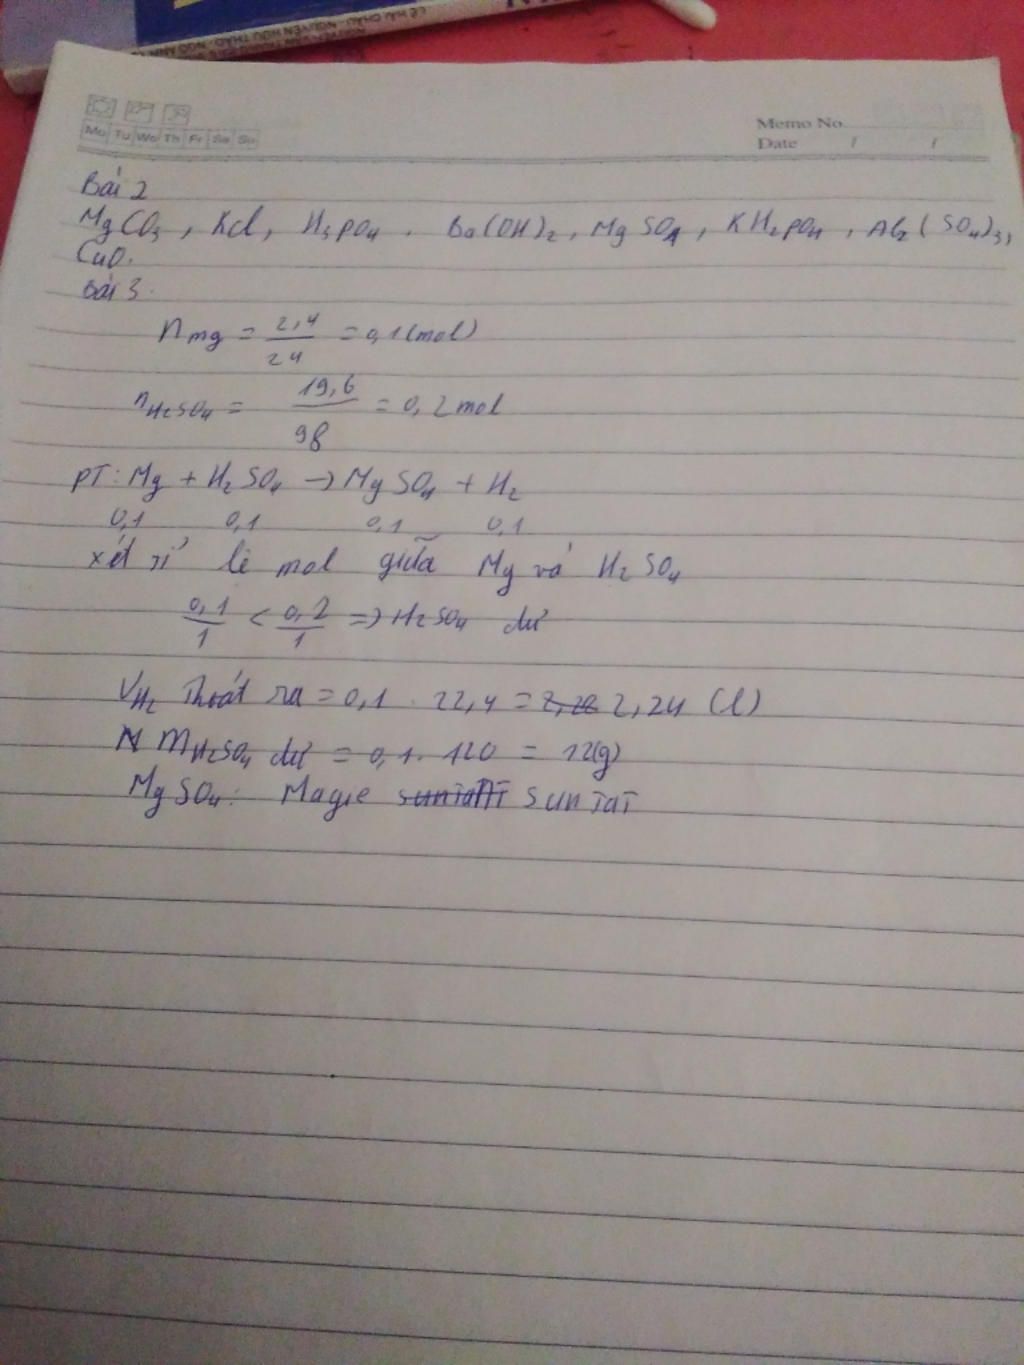 LÊ HẢI CHÂU - NGUYỄN HỮU THẢO - NGÔ ÁNH
Mo Tu We Th Fr Sa Su
Memo No.
Date / /
Bài 2
MgCO3, KCl, H3PO4. Ba(OH)2, MgSO4, KH2PO4, Al2(SO4)3,
CuO.
Bài 3.
nmg = 2,4/24 = 0,1(mol)
nH2SO4 = 19,6/98 = 0,2mol
PT: Mg + H2SO4 → MgSO4 + H2
0,1 0,1 0,1 0,1
xét tỉ lệ mol giữa Mg và H2SO4
0,1/1 < 0,2/1 => H2SO4 dư
VH2 Thoát ra = 0,1 . 22,4 = 2,24 (l)
mH2SO4 dư = 0,1. 120 = 12(g)
MgSO4: Magie sunfat